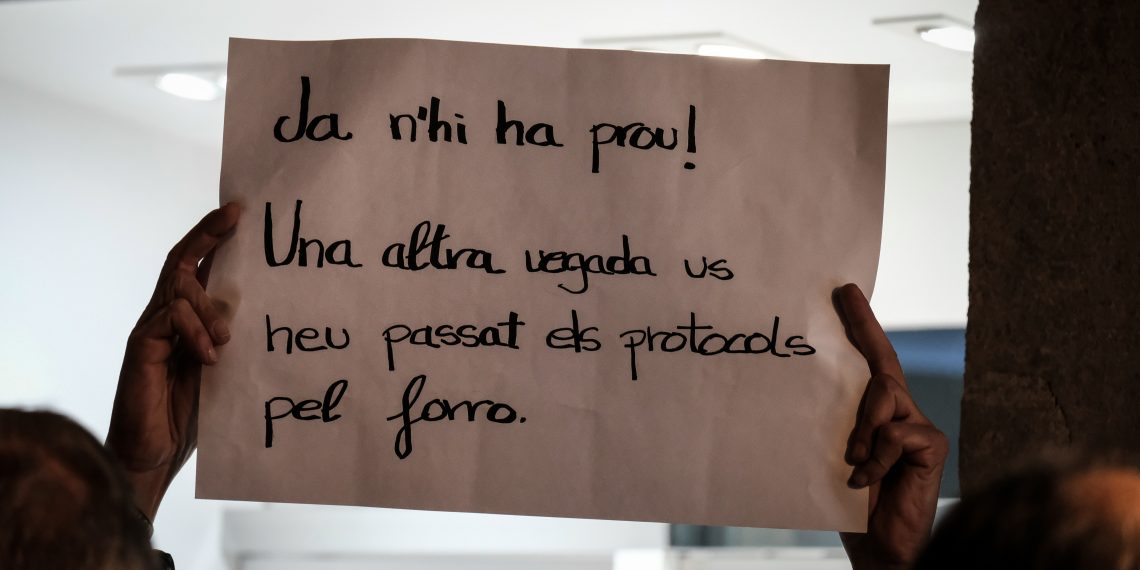 Ja n'hi ha prou!
Una altra vegada us
heu passat els protocols
pel forro.